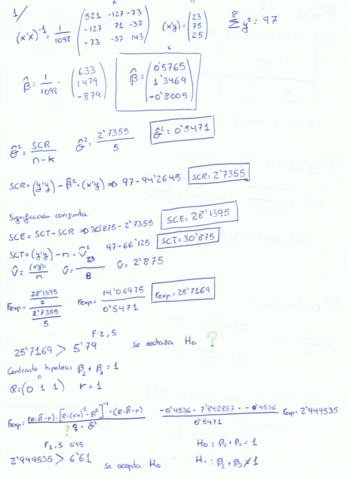 1/
(x'x)⁻¹ = 1/1098 (521 -127 -73 / -127 71 -37 / -73 -37 143) (x'y) = (23 / 75 / 25) Σy² = 97
β̂ = 1/1098 · (633 / 1479 / -879) β̂ = (0'5765 / 1'3469 / -0'8005)
σ̂² = SCR/n-k σ̂² = 2'7355/5 σ̂² = 0'5471
SCR = (y'y) - β̂ · (x'y) ⇒ 97 - 94'2645 SCR = 2'7355
Significación conjunta
SCE = SCT - SCR ⇒ 30'875 - 2'7355 SCE = 28'1395
SCT = (y'y) - n · 97 - 66'125 SCT = 30'875
23/8 2'875
Fexp = 28'1395/2 / 2'7355/5 Fexp = 14'06975/0'5471 Fexp = 25'7169
F 2,5
25'7169 > 5'79 se rechaza H₀ ?
Contraste hipótesis β₂ + β₃ = 1
R = (0 1 1) r = 1
Fexp = (R·β̂-r)·[R·(x'x)⁻¹·R']⁻¹·(R·β̂-r) / q · σ̂² -0'4536 · · -0'4536 / 0'5471 Fexp = 2'949535
?
F 1,5 0'95 H₀: β₂ + β₃ = 1
2'949535 > 6'61 se acepta H₀ H₁: β₂ + β₃ ≠ 1